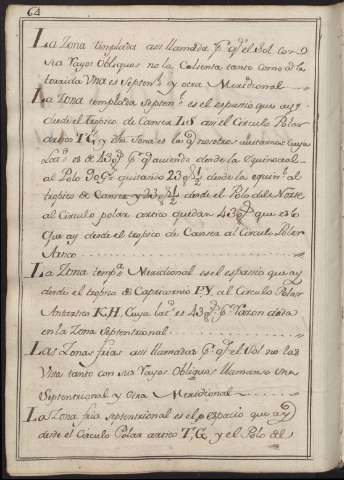 64
La Zona templada assi llamada pr. qe. el Sol con
sus Rayos Obliquos no la Calienta tanto como a la
torrida Vna es Septenl. y otra Meridional
La Zona templada Septenl. es el espasio que ay
desde el tropico de Cancer L S asu el Circulo Polar
artico T G y esta Sona es la qe nosotros auitamos Cuya
es de 43 gs pr. qe auiendo desde la Equinocial
al Polo 90 gs quitando 23 gs ½ desde la equinl. al
tropico de Cancer y 23 gs ½ desde el Polo del Norte
al Circulo polar artico quedan 43 gs que es lo
Que ay desde el tropico de Cancer al Circulo Polar
Artico
La Zona tempa. Meridional es el espasio que ay
desde el tropico de Capricornio P Y al Circulo Polar
Antartico K H Cuya es 43 gs pr. la Razon dada
en la Zona Septentrional
Las Zonas frias assi llamadas pr. qe el Sol no las
Vista tanto con sus Rayos Obliquos llamanse Vna
Septentrional y otra Meridional
La Zona fria septentrional es el espacio que ay
desde el Circulo Polar artico T G y el Polo de